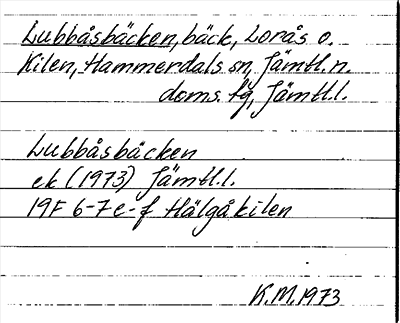 Lubbåsbäcken, bäck, Lorås o.
Kilen, Hammerdals sn, Jämtl. n.
doms. tg, Jämtl.l.
Lubbåsbäcken
ek (1973) Jämtl.l.
19F 6-7e-f Hälgåkilen
K.M. 1973